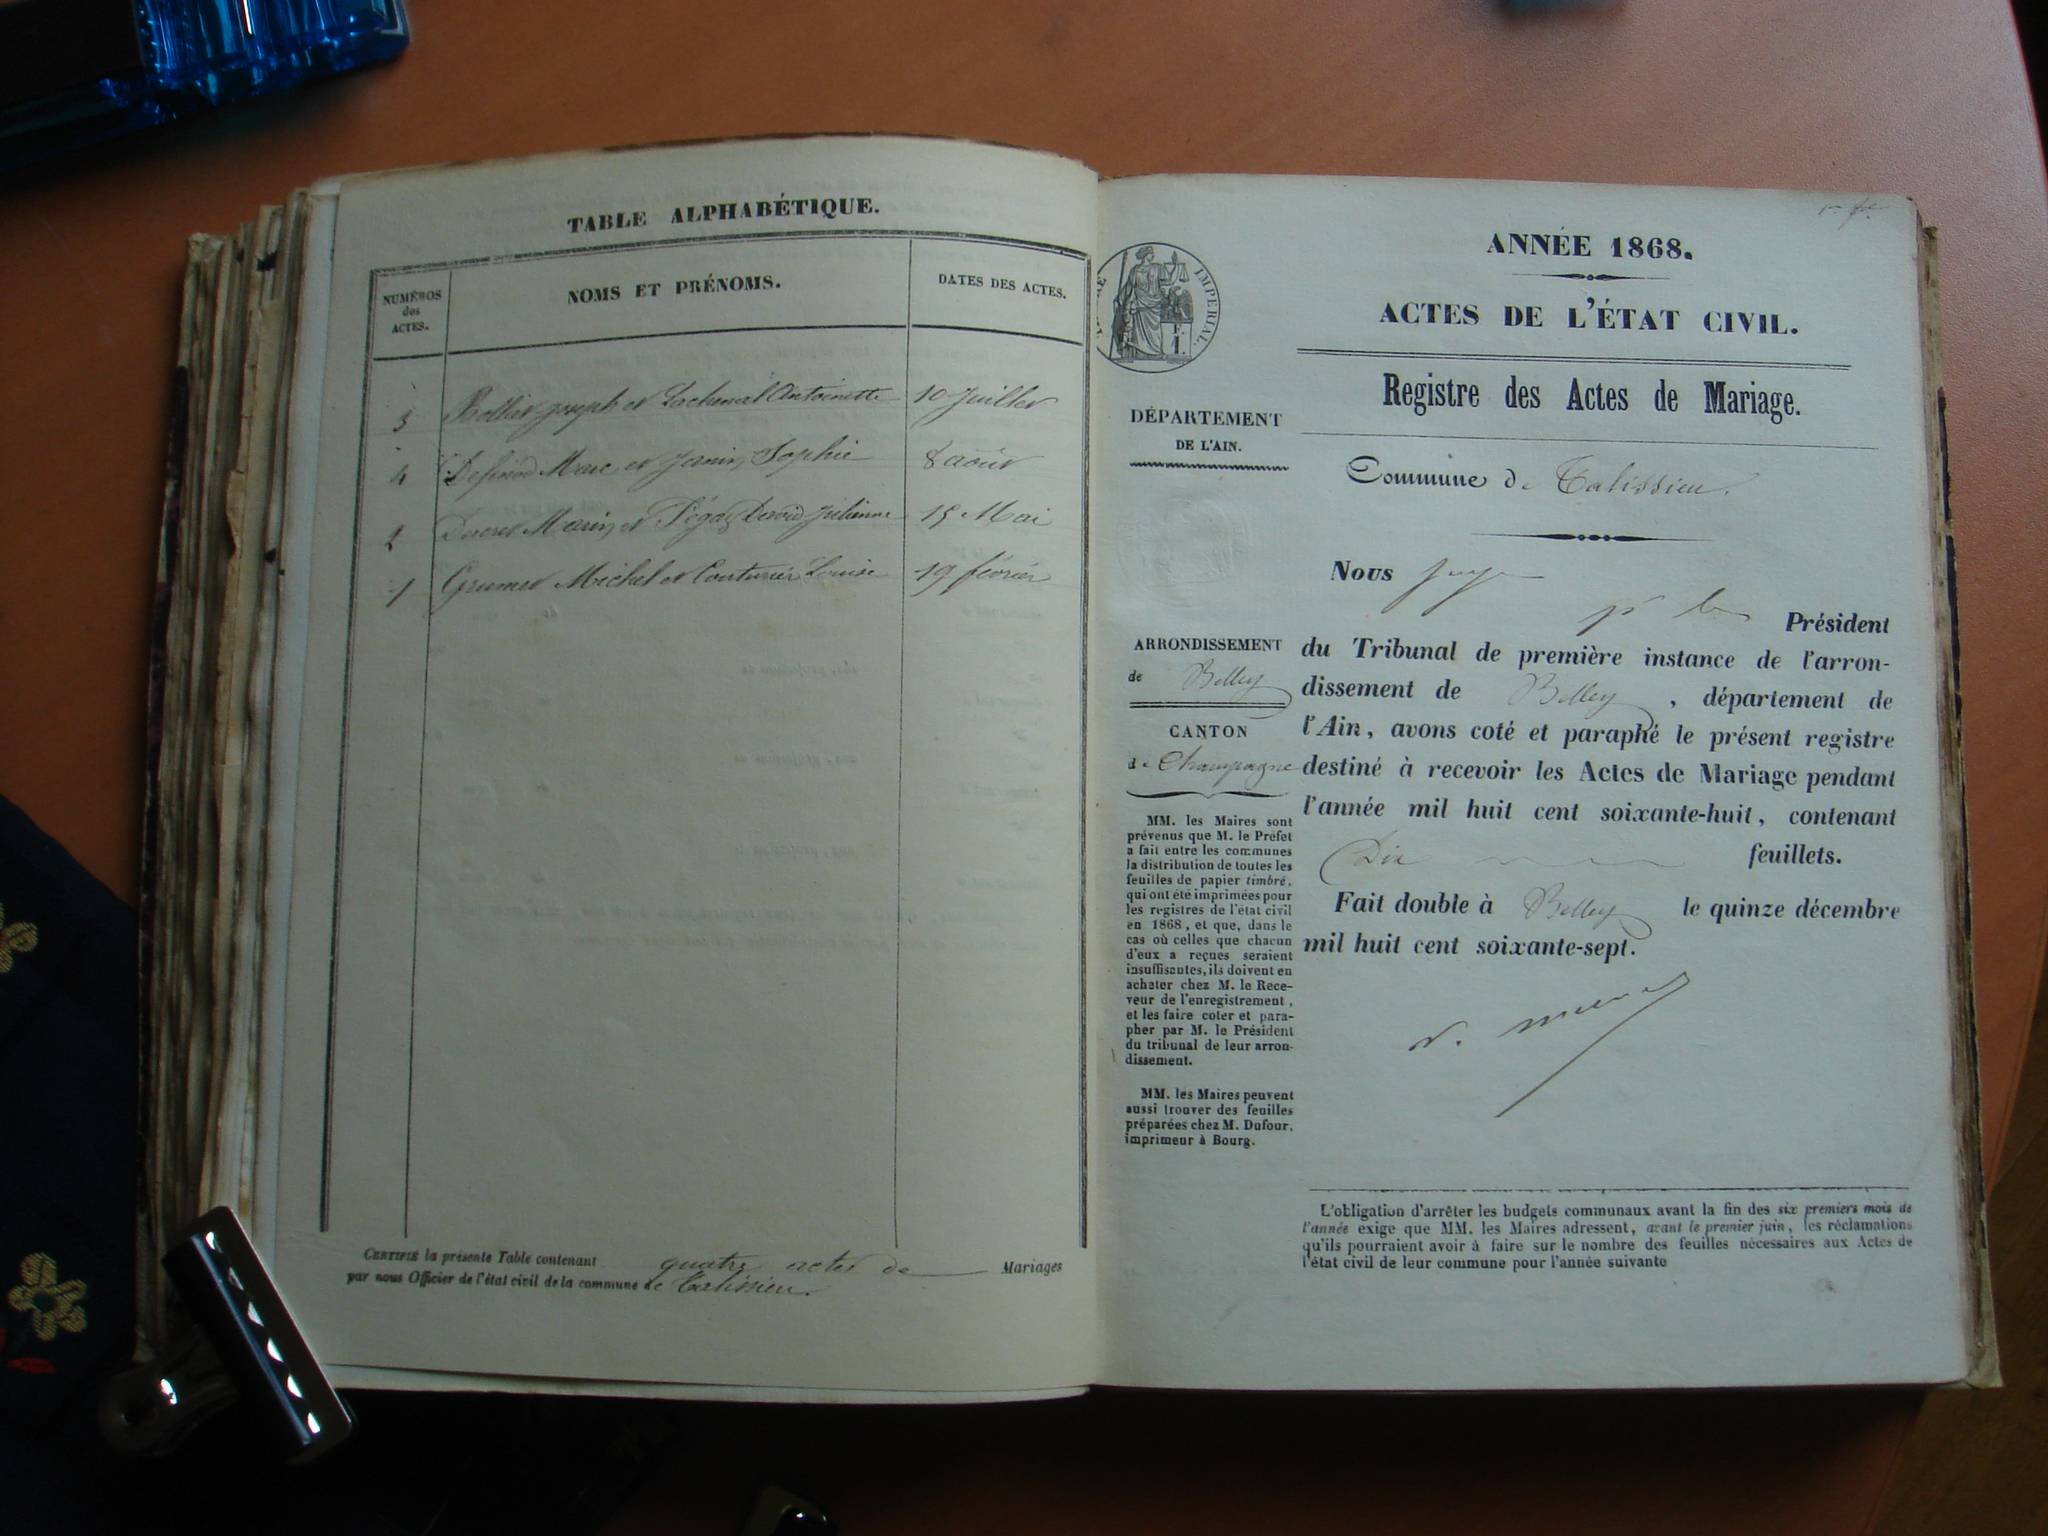 TABLE ALPHABÉTIQUE.
NUMÉROS
des
ACTES.
NOMS ET PRÉNOMS.
DATES DES ACTES.
3 Bollier joseph et Lachenal Antoinette 10 juillet
4 Marc et Janin Sophie 8 août
2 Marin et Pégaz David 15 Mai
1 Grumet Michel et Couturier Louise 19 février
CERTIFIÉ la présente Table contenant quatre actes de Mariages
par nous Officier de l'état civil de la commune de Talissieu.
IMPERIAL.
DÉPARTEMENT
DE L'AIN.
ARRONDISSEMENT
de Belley
CANTON
de Champagne
MM. les Maires sont
prévenus que M. le Préfet
a fait entre les communes
la distribution de toutes les
feuilles de papier timbré,
qui ont été imprimées pour
les registres de l'état civil
en 1868, et que, dans le
cas où celles que chacun
d'eux a reçues seraient
insuffisantes, ils doivent en
acheter chez M. le Rece-
veur de l'enregistrement,
et les faire coter et para-
pher par M. le Président
du tribunal de leur arron-
dissement.
MM. les Maires peuvent
aussi trouver des feuilles
préparées chez M. Dufour,
imprimeur à Bourg.
ANNÉE 1868.
ACTES DE L'ÉTAT CIVIL.
Registre des Actes de Mariage.
Commune de Talissieu.
Nous juge
pr le Président
du Tribunal de première instance de l'arron-
dissement de Belley, département de
l'Ain, avons coté et paraphé le présent registre
destiné à recevoir les Actes de Mariage pendant
l'année mil huit cent soixante-huit, contenant
Dix feuillets.
Fait double à Belley le quinze décembre
mil huit cent soixante-sept.
L'obligation d'arrêter les budgets communaux avant la fin des six premiers mois de
l'année exige que MM. les Maires adressent, avant le premier juin, les réclamations
qu'ils pourraient avoir à faire sur le nombre des feuilles nécessaires aux Actes de
l'état civil de leur commune pour l'année suivante